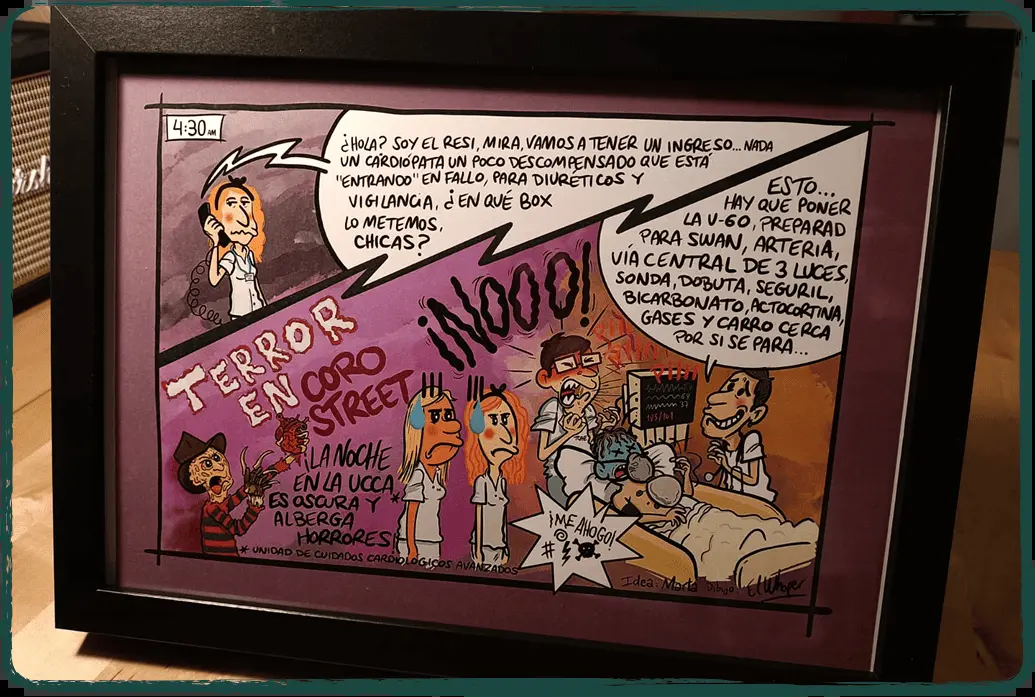 4:30 AM
¿HOLA? SOY EL RESI, MIRA, VAMOS A TENER UN INGRESO... NADA
UN CARDIÓPATA UN POCO DESCOMPENSADO QUE ESTÁ
"ENTRANDO" EN FALLO, PARA DIURÉTICOS Y
VIGILANCIA, ¿EN QUÉ BOX
LO METEMOS,
CHICAS?
ESTO...
HAY QUE PONER
LA U-60, PREPARAD
PARA SWAN, ARTERIA,
VÍA CENTRAL DE 3 LUCES,
SONDA, DOBUTA, SEGURIL,
BICARBONATO, ACTOCORTINA,
GASES Y CARRO CERCA
POR SI SE PARA...
¡NOOO!
TERROR
EN CORO
STREET
¡LA NOCHE
EN LA UCCA *
ES OSCURA Y
ALBERGA
HORRORES!
* UNIDAD DE CUIDADOS CARDIOLÓGICOS AVANZADOS
¡ME AHOGO!
#
Idea: Marta Dibujo: El Wioper